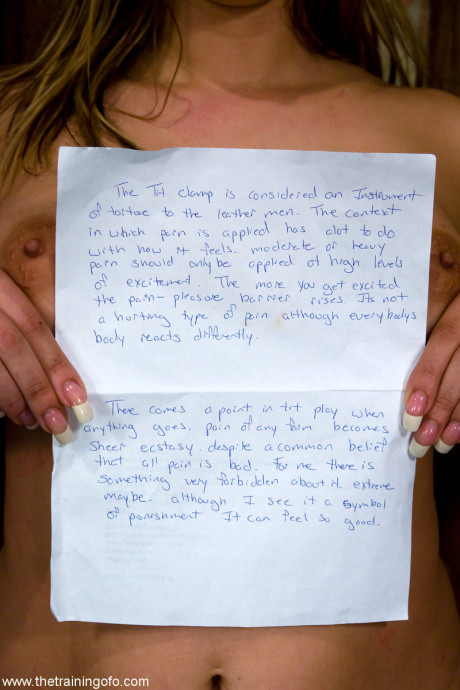 The Tit clamp is considered an Instrument
of tortue to the leather men. The context
in which pain is applied has alot to do
with how it feels. moderate or heavy
pain should only be applied at high levels
of excitement. The more you get excited
the pain-pleasure barrier rises. Its not
a hurting type of pain although everybodys
body reacts differently.
There comes a point in tit play when
anything goes. pain of any form becomes
sheer ecstasy. despite a common belief
that all pain is bad. For me there is
something very forbidden about it. extreme
maybe. although I see it a symbol
of ponishment It can feel so good.
www.thetrainingofo.com